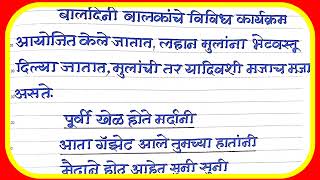 बालदिनी बालकांचे विविध कार्यक्रम
आयोजित केले जातात, लहान मुलांना भेटवस्तू
दिल्या जातात, मुलांची तर यादिवशी मजाच मजा
असते.
पूर्वी खेळ होते मर्दानी
आता गॅझेट आले तुमच्या हातांनी
मैदाने होत आहेत सुनी सुनी